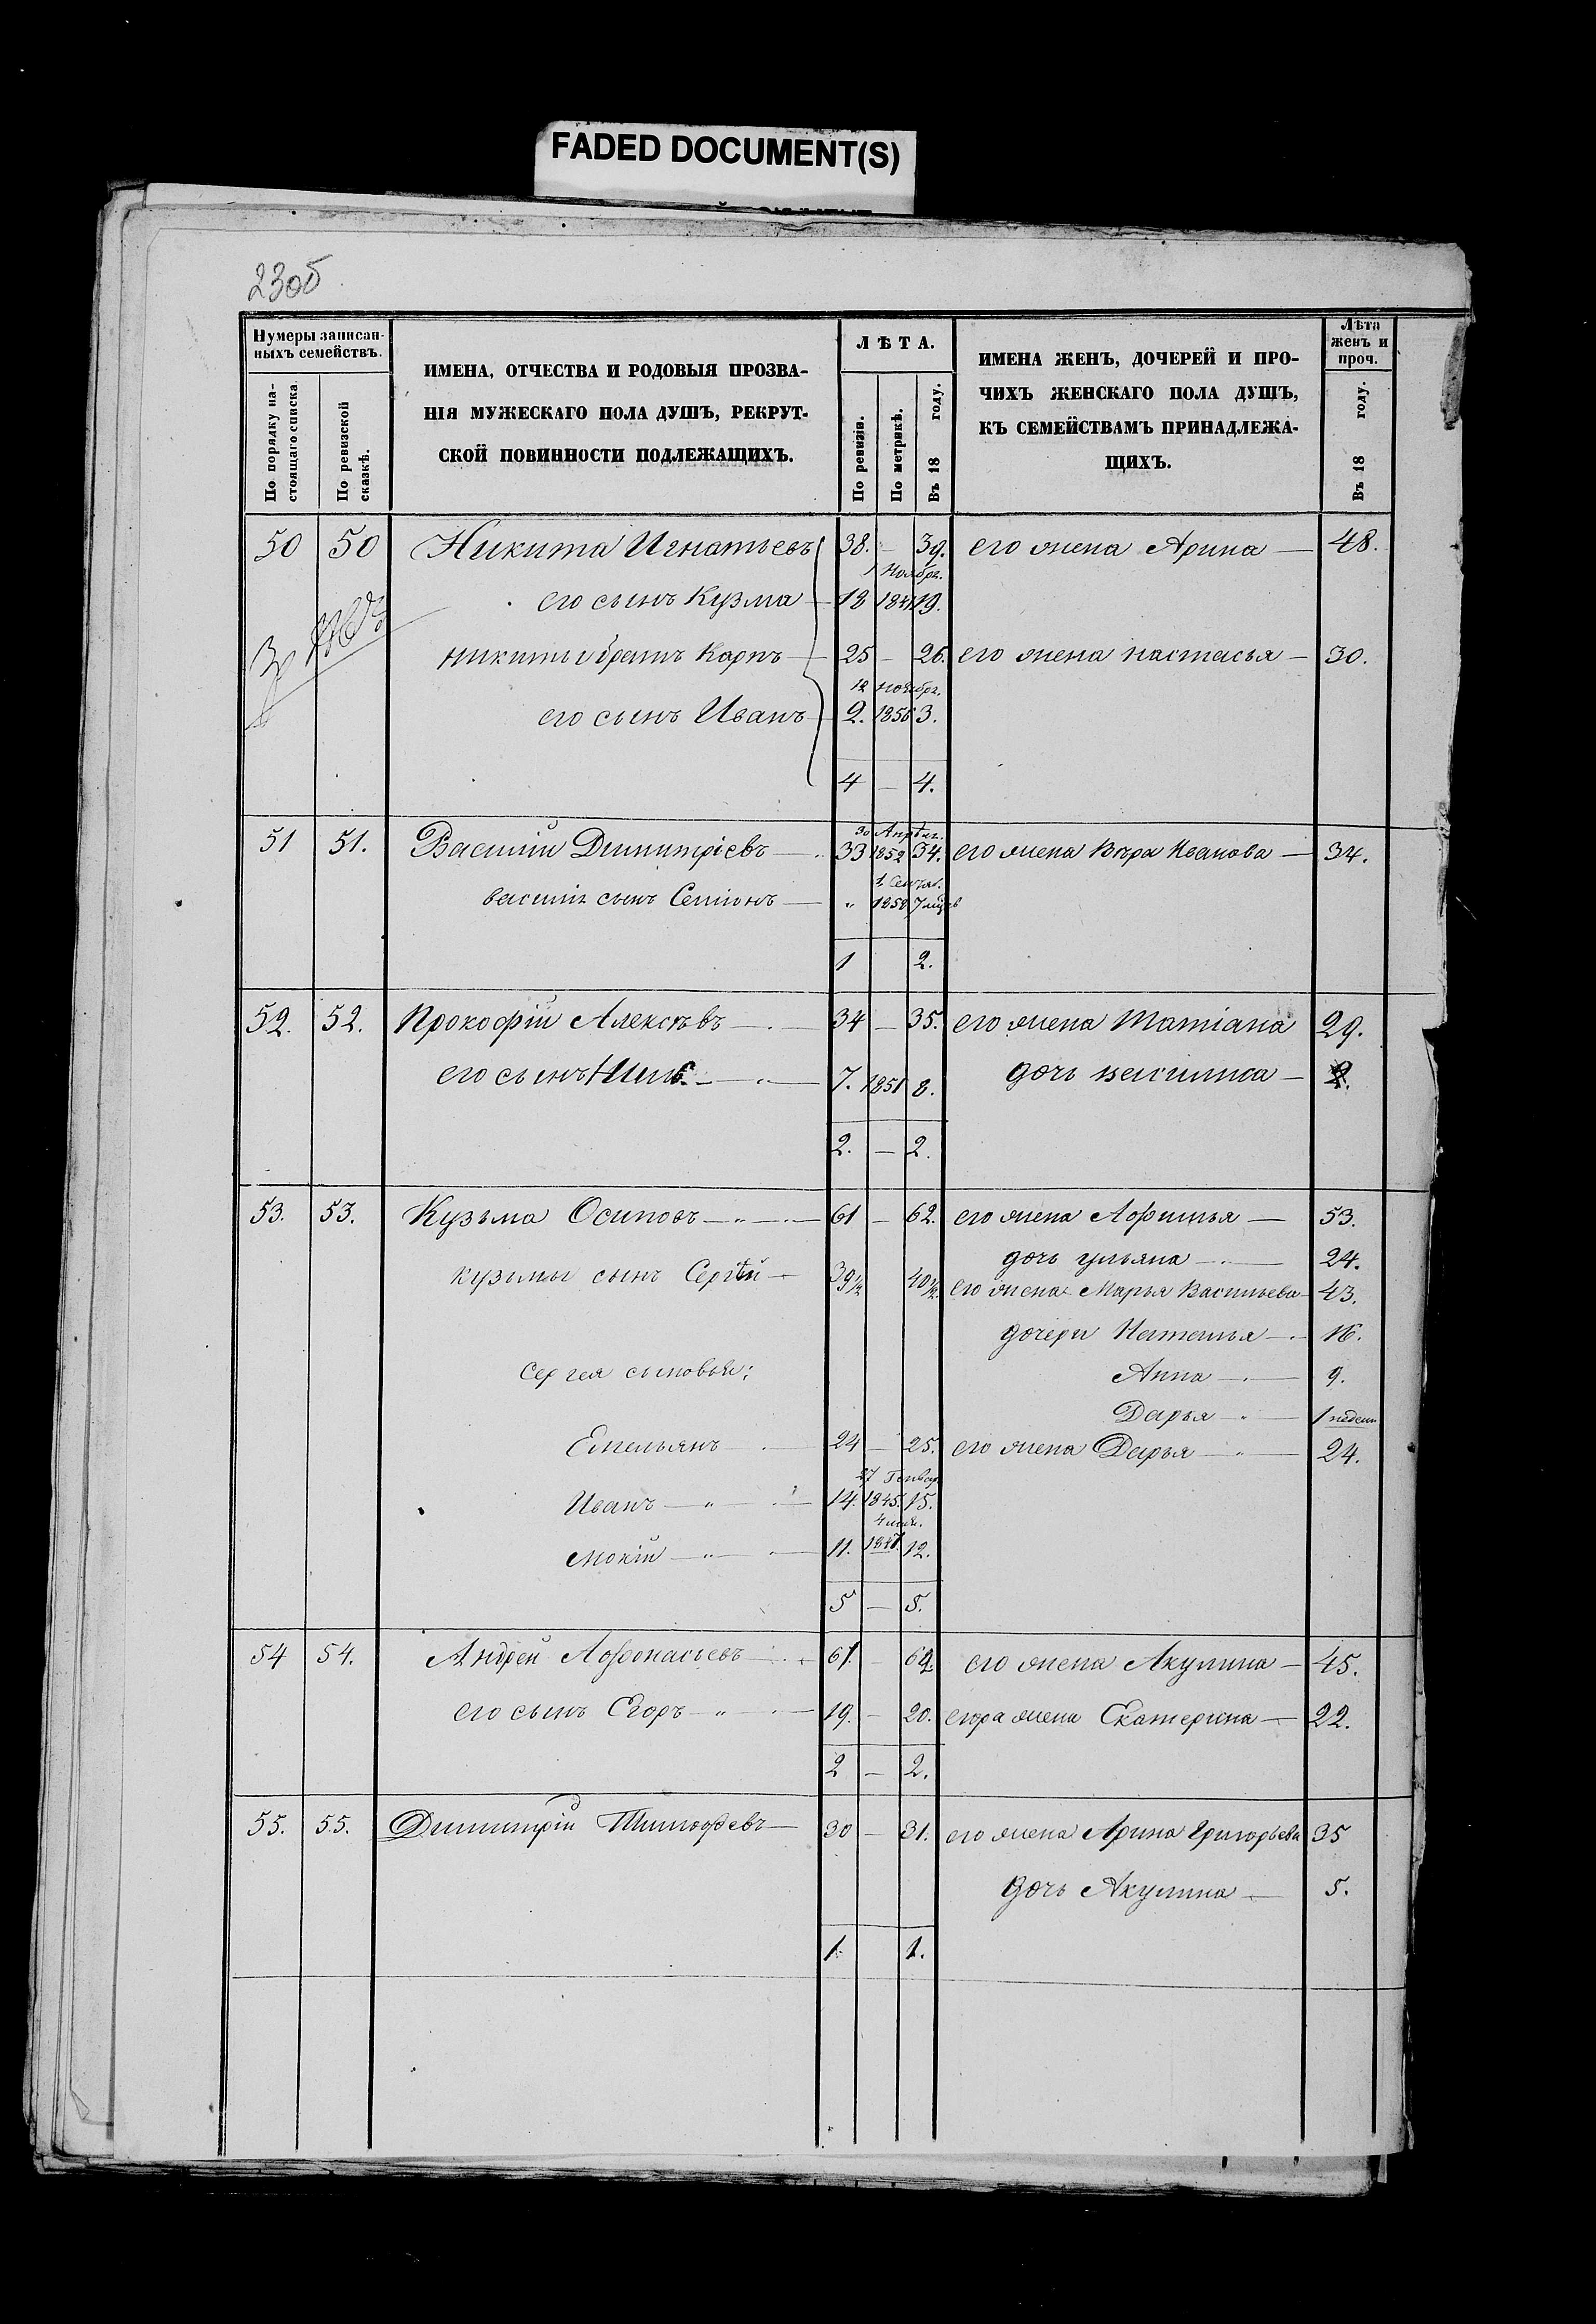 FADED DOCUMENT(S)
230б
Нумеры записан-
ныхъ семействъ.
По порядку на-
стоящаго списка.
По ревизской
сказкѣ.
ИМЕНА, ОТЧЕСТВА И РОДОВЫЯ ПРОЗВА-
НІЯ МУЖЕСКАГО ПОЛА ДУШЪ, РЕКРУТ-
СКОЙ ПОВИННОСТИ ПОДЛЕЖАЩИХЪ.
ЛѢТА.
По ревизіи.
По метрикѣ.
Въ 18 году.
ИМЕНА ЖЕНЪ, ДОЧЕРЕЙ И ПРО-
ЧИХЪ ЖЕНСКАГО ПОЛА ДУШЪ,
КЪ СЕМЕЙСТВАМЪ ПРИНАДЛЕЖА-
ЩИХЪ.
Лѣта
женъ и
проч.
Въ 18 году.
50 50 Никита Игнатьевъ 38. — 39. его жена Арина — 48.
1 Ноября.
его сынъ Кузма — 18 1841 19.
никиты братъ Карпъ — 25 — 26. его жена настасья — 30.
12 Ноября.
его сынъ Иванъ — 2. 1856 3.
4 — 4.
51 51. Василій Димитріевъ — 33 1852 34. его жена Вѣра Иванова — 34.
30 Апрѣля.
1 Сентяб.
василія сынъ Семіонъ — „ 1858 7 мцов
1 2.
52. 52. Прокофій Алексѣвъ — 34 — 35. его жена Татіана 29.
его сынъ — „ — 7. 1851 8. дочь —
2. — 2.
53. 53. Кузьма Осиповъ — „ — 61 — 62. его жена Афимья — 53.
дочь ульяна — 24.
кузьмы сынъ Сергѣй — 39½ 40½ его жена Марья Васильева — 43.
дочери Наталья — 16.
Сергея сыновья: Анна — 9.
Дарья — „ — 1 недели
Емельянъ — 24 — 25. его жена Дарья — „ — 24.
27 Генвар
Иванъ — „ — 14. 1845. 15.
4 июля.
мокій — „ — 11. 1847. 12.
5 — 5.
54 54. Андрей Афонасьевъ — 61. — 62 его жена Акулина — 45.
его сынъ Егоръ — „ — 19. — 20. егора жена Екатерина — 22.
2 — 2.
55. 55. Димитрій Тимофевъ — 30 — 31. его жена Арина Григорьева 35
дочь Акулина — 5.
1. 1.